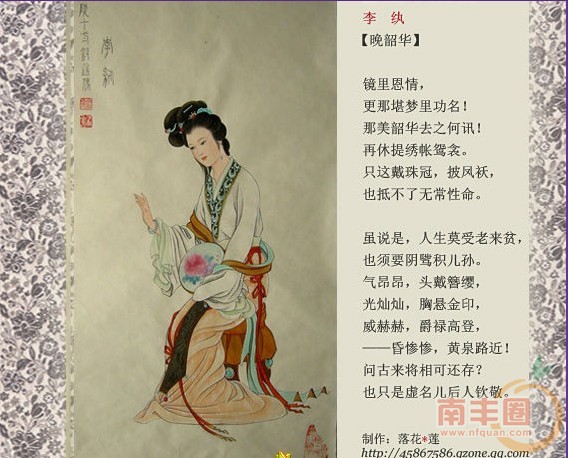 李纨
【晚韶华】
镜里恩情，
更那堪梦里功名！
那美韶华去之何讯！
再休提绣帐鸳衾。
只这戴珠冠，披凤袄，
也抵不了无常性命。
虽说是，人生莫受老来贫，
也须要阴骘积儿孙。
气昂昂，头戴簪缨，
光灿灿，胸悬金印，
威赫赫，爵禄高登，
——昏惨惨，黄泉路近！
问古来将相可还存？
也只是虚名儿后人钦敬。
制作：落花*莲
http://45867586.qzone.qq.com
南丰圈
www.nfquan.com
李紈